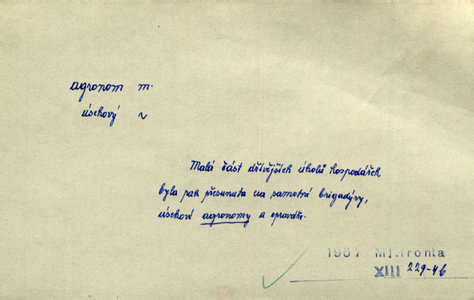 agronom m.
úsekový ~
Malá část dřívějších úkolů hospodářek
byla pak přesunuta na samotné brigadýry,
úsekové agronomy a
1957 Ml.fronta
XIII 229-46